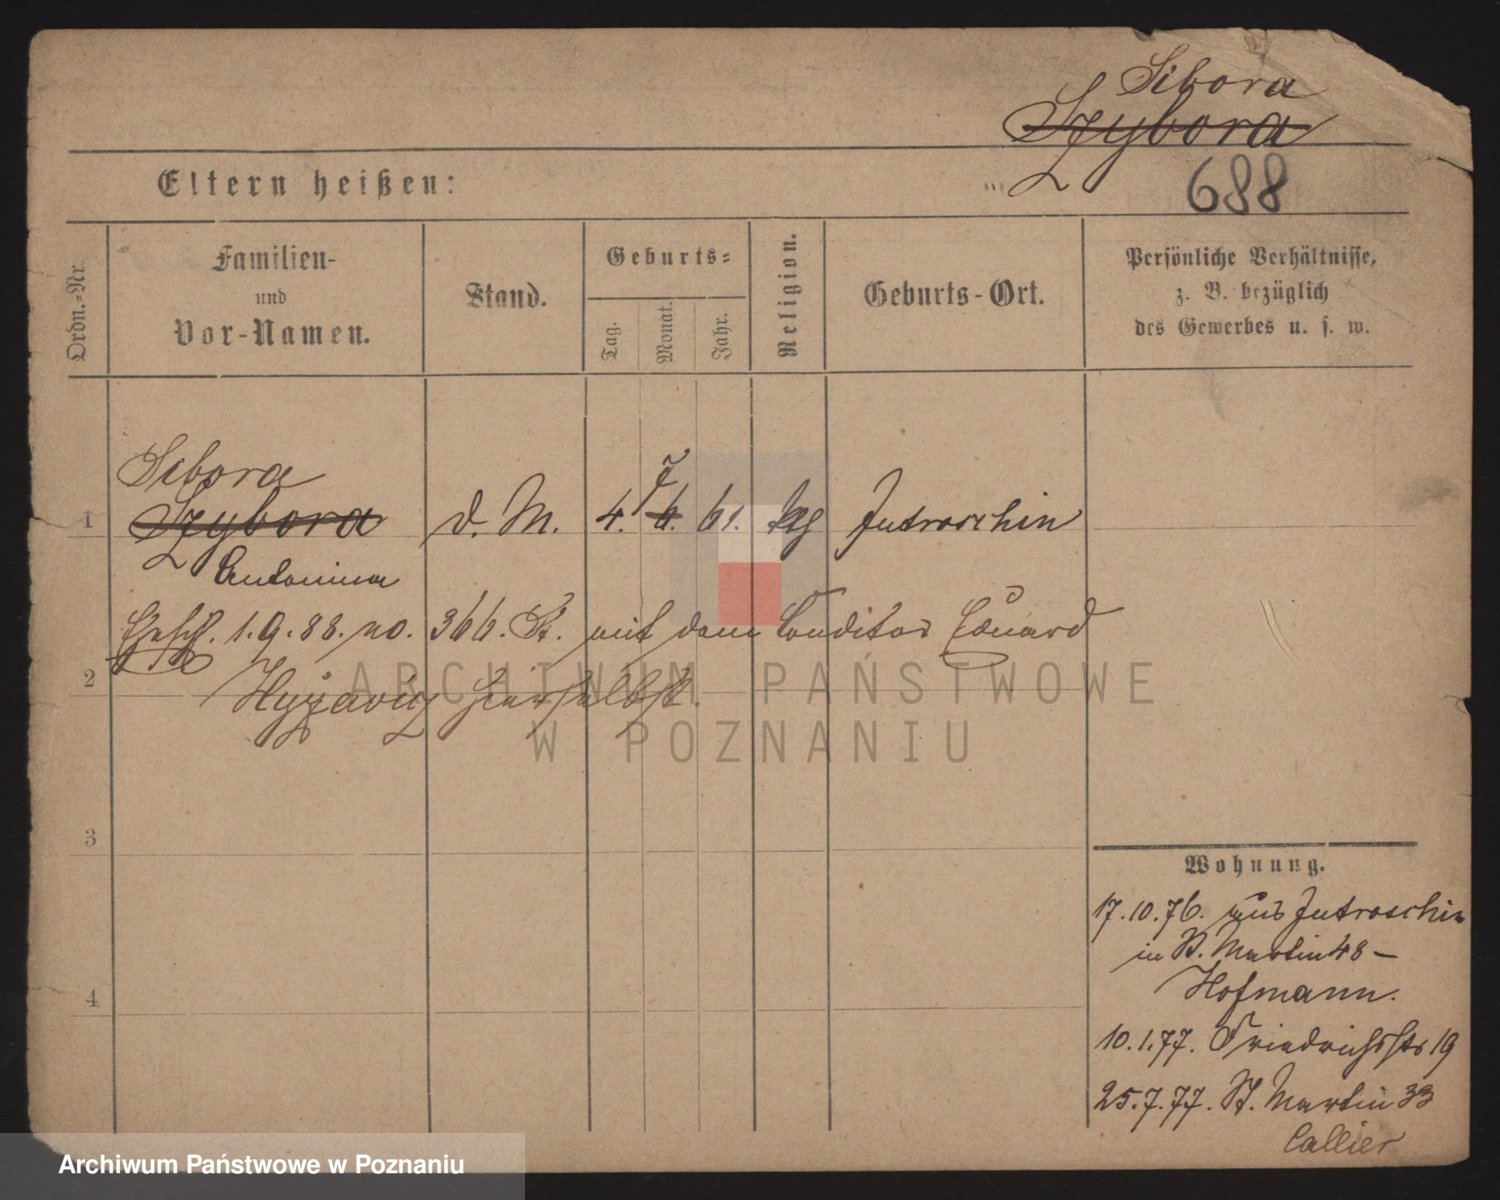 Sibora
Szybora
Eltern heißen:
688
Ordn.-Nr.
Familien-
und
Vor-Namen.
Stand.
Geburts-
Tag.
Monat.
Jahr.
Religion.
Geburts-Ort.
Persönliche Verhältnisse,
z. B. bezüglich
des Gewerbes u. s. w.
Sibora
7
1 Szybora d. M. 4. 6. 61. kg Jutroschin
Antonina
1.9.88. no. 366. St. mit dem Conditor Eduard
2
hierselbst.
ARCHIWUM PAŃSTWOWE
W POZNANIU
3
4
Wohnung.
17.10.76. aus Jutroschin
in St. Martin 48 –
Hofmann.
10.1.77. Friedrichsstr 19
25.7.77. St. Martin 33
Callier
Archiwum Państwowe w Poznaniu